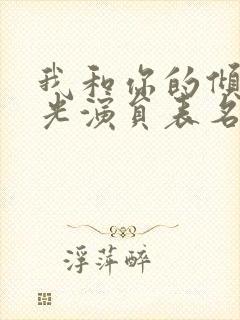 我和你的倾
光演员表名
浮萍醉